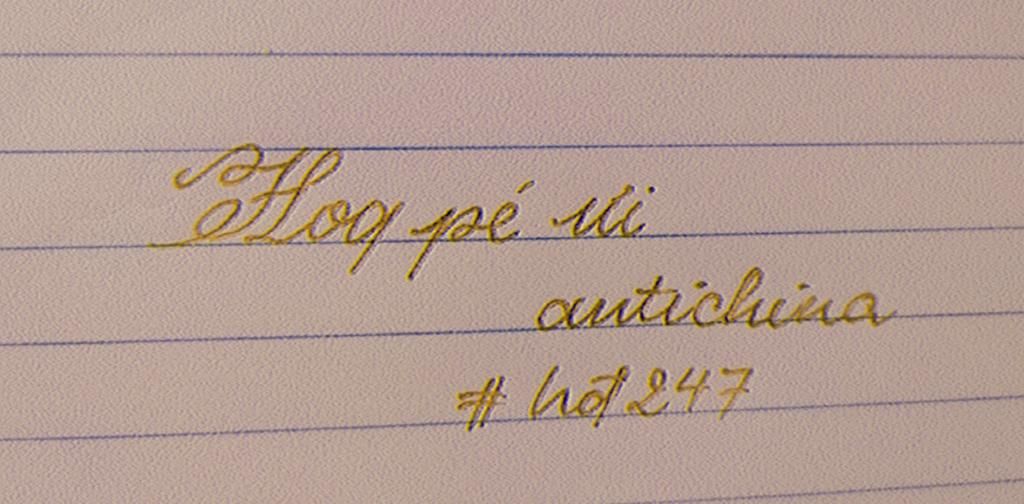 Hoq pé vi
antichina
# hot 247